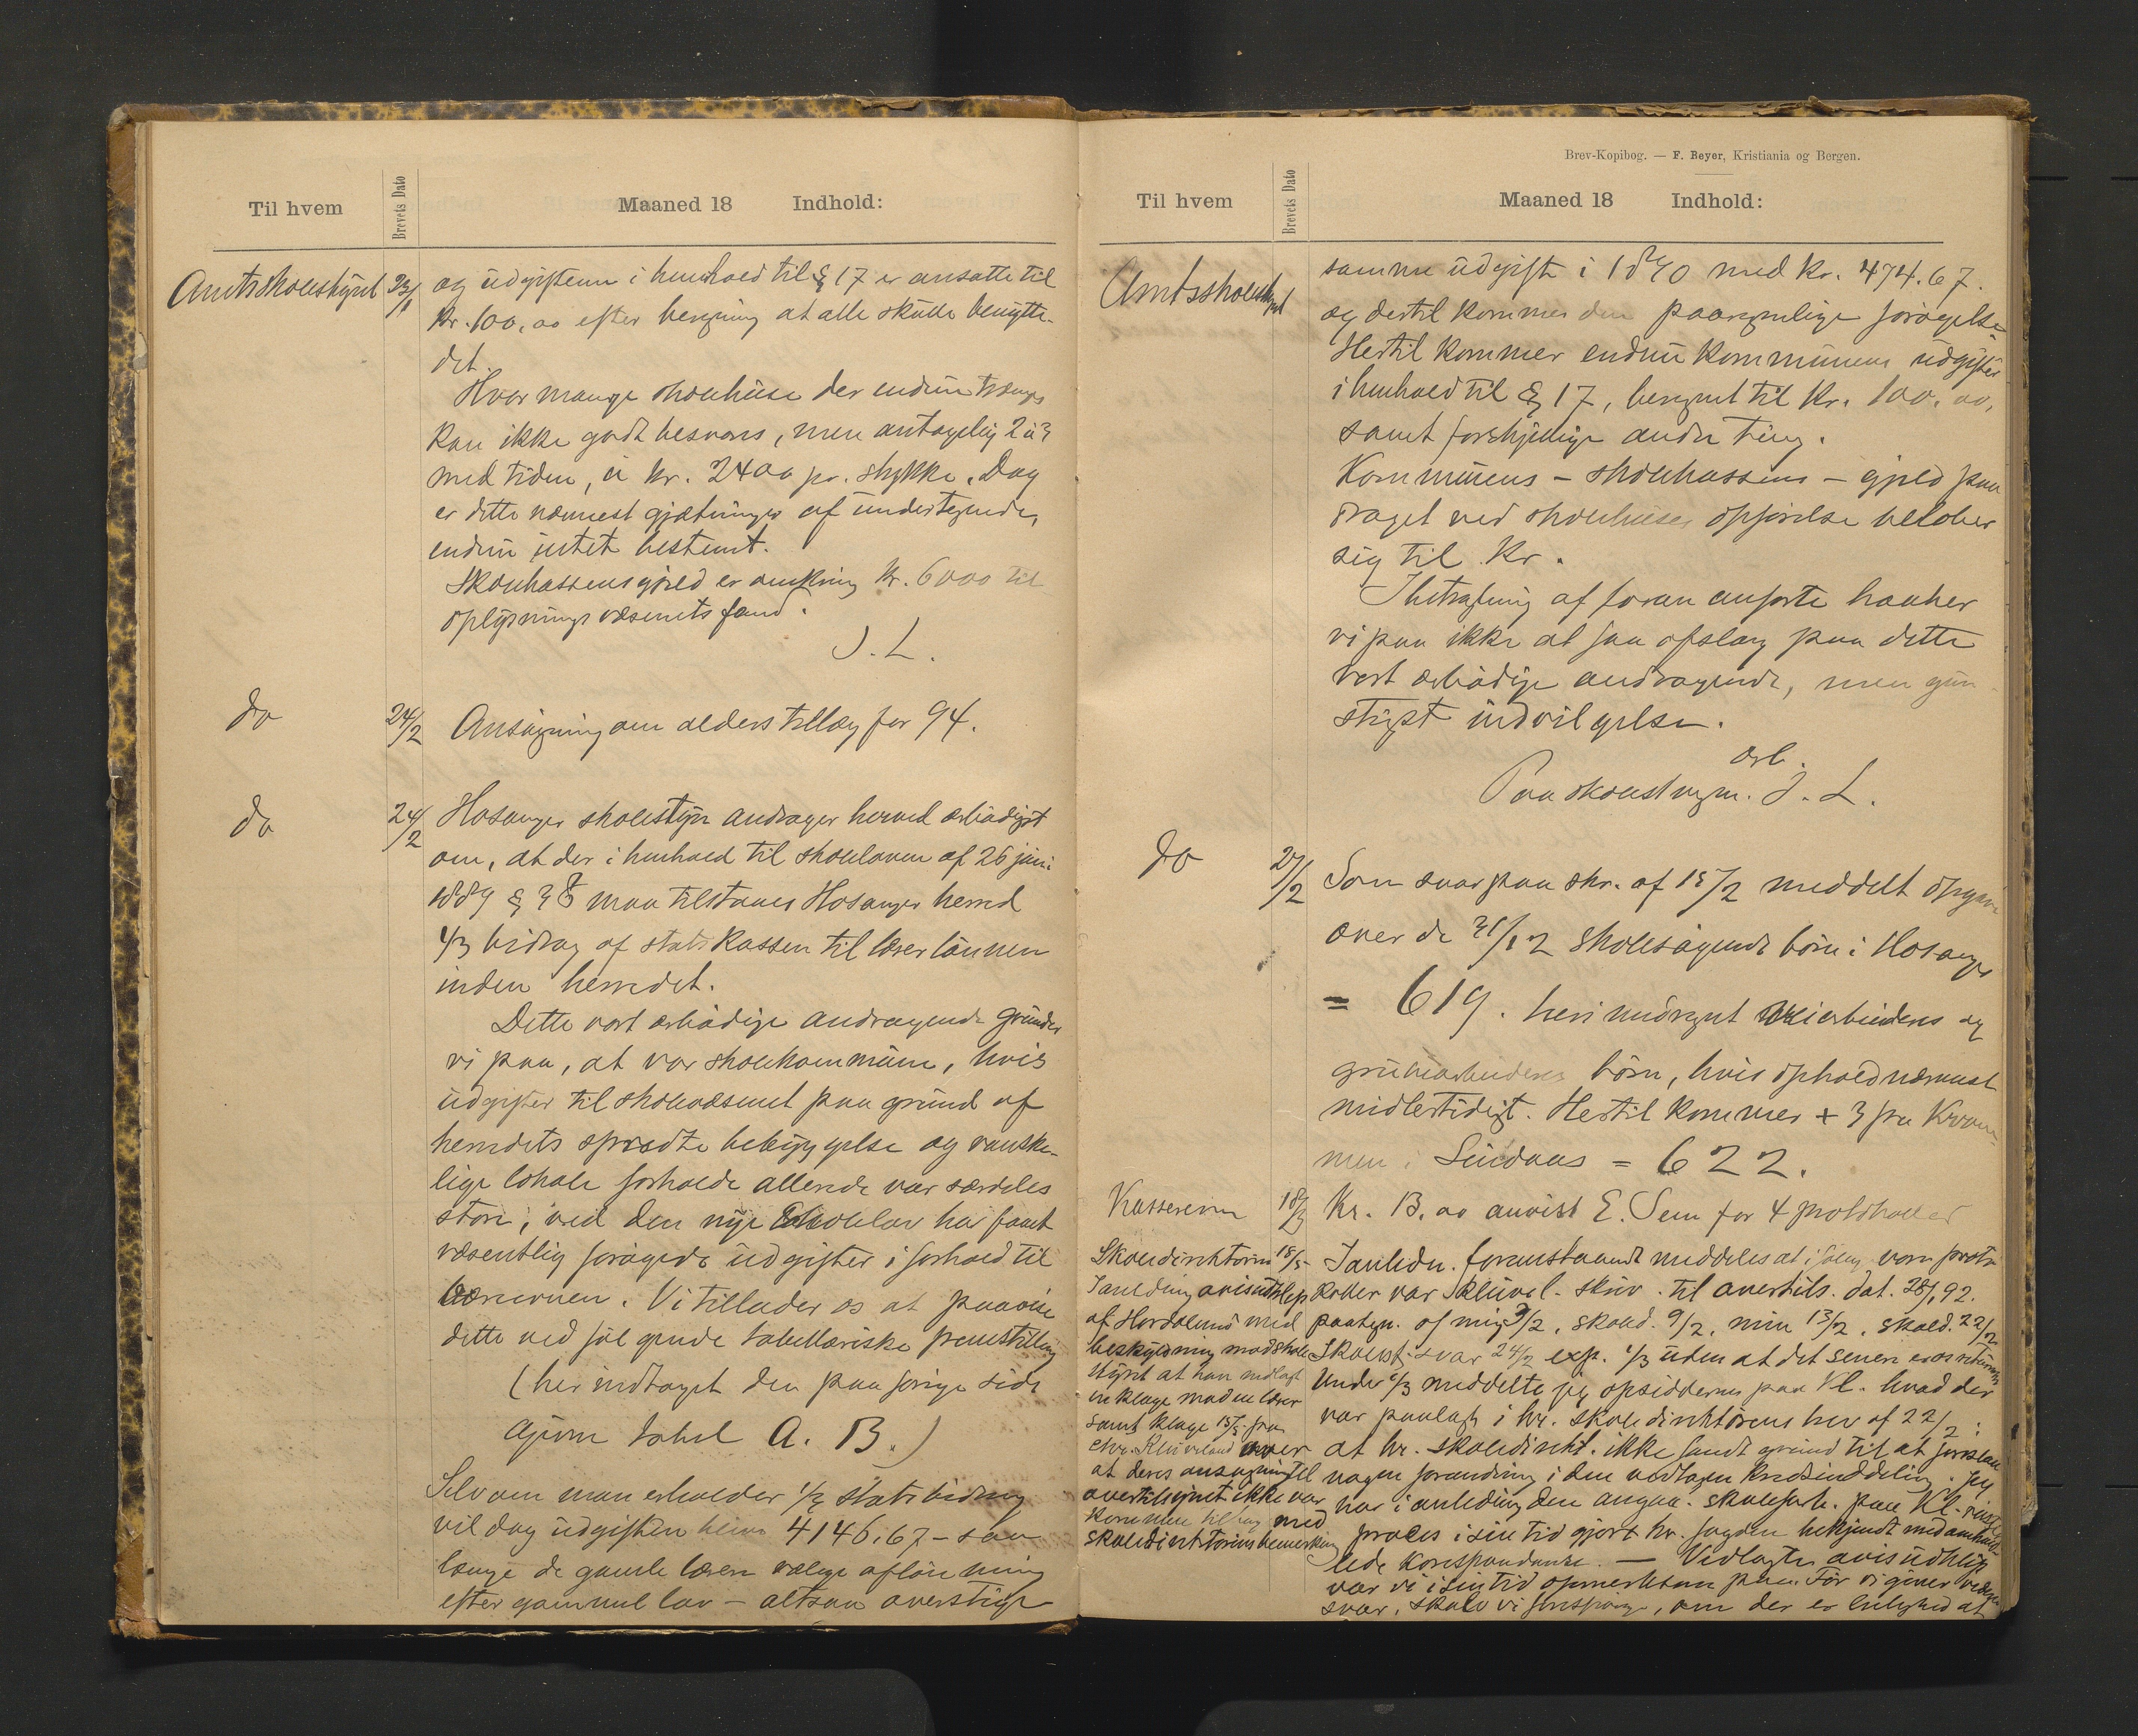 Til hvem
Brevets Dato
Maaned 18 Indhold:
Amtsskolestyret 23/1 og üdgiftenn i henhold til § 17 er ansatte til
kr. 100,00 efter beregning at alle skulde benytte
det.
Hvor mange skolehüse der endnü trænges
kan ikke godt besvares, men antagelig 2 à 3
med tiden, à kr. 2400 pr. stykke. Dog
er dette nærmest gjætninger af ündertegnede,
endnü intet bestemt.
Skolekassens gjæld er omkring kr. 6000 til
oplysningsvæsenets fond.
J. L.
do 24/2 Ansøgning om alderstillæg for 94.
do 24/2 Hosanger skolestyre andrager herved ærbødigst
om, at der i henhold til skoleloven af 26 jüni
1889 § 38 maa tilstaaes Hosanger herred
1/3 bidrag af statskassen til lærerlønnen
inden herredet.
Dette vort ærbødige andragende gründer
vi paa, at vor skolekommüne, hvis
üdgifter til skolevæsenet paa gründ af
herredets spredte bebyggelse og vanske-
lige lokale forholde allerede var særdeles
store, ved den nye skolelov har faaet
væsentlig forøgede üdgifter i forhold til
evnen. Vi tillader os at paavise
dette ved følgende tabellariske fremstilling
(her indtaget den paa forrige side
givne tabel A. B.)
Selv om man erholder 1/3 statsbidrag
vil dog üdgiften blive 4146.67 – saa
længe de gamle lærere vælge aflønning
efter gammel lov – altsaa overstige
Brev-Kopibog. — F. Beyer, Kristiania og Bergen.
Til hvem
Brevets Dato
Maaned 18 Indhold:
Amtsskolestyret
samme üdgift i 1890 med kr. 474.67.
og dertil kommer den paaregnelige forøgelse
Hertil kommer endnü kommünens üdgifter
i henhold til § 17, beregnet til kr. 100.00,
samt forskjellige andre ting.
Kommünens – skolekassens – gjæld paa
draget ved skolehüses opførelse beløber
sig til kr.
I betragtning af foran anførte haaber
vi paa ikke at faa afslag paa dette
vort ærbødige andragende, men gün-
stigst indvilgelse.
ærb.
Paa skolest vegne. J. L.
do 27/2 Som svar paa skr. af 15/2 meddelt opgave
over de 31/12 skolesøgende børn i Hosanger
= 619. heri medregnet veiarbeideres og
grübearbeideres børn, hvis ophold nærmest
midlertidigt. Hertil kommer + 3 fra
i Lindaas = 622.
Kassereren 18/3 Kr. 13.00 anvist E. Sem for 4 protokoller
Skoledirektøren 18/5
avisütklip
af Hordaland med
beskyldning mod skole-
styret at have nedlagt
en klage mod en lærer
samt klage 15/5 fra
Chr. Klüveland over
at deres ansøgning til
overtilsynet ikke var
kommen med
skoledirektørens bemerkning
I anledn. foranstaaende meddeles at ifølge vore proto-
koller var Klüvel. skriv. til overtils. dat. 28/1 92.
paategn. af mig 3/2, skoled. 9/2, min 13/2, skoled. 22/2
Skolest. svar 24/2 exp. 1/3 üden at det senere er os
Ünder 1/3 meddelte jeg opsidderne paa Kl. hvad der
var paalagt i hr. skoledirektørens brev af 22/2:
at hr. skoledirekt. ikke fandt gründ til at foreslaa
nogen forandring i den vedtagne kredsinddeling. Jeg
har i anledning den angaa. skoleforh. paa Kl.
proces i sin tid gjort hr. fogden bekjendt med
korrespondanse. — Vedlagte avisüdklip
var vi i sin tid opmerksom paa. Før vi giver
svar, skal vi forespørge, om der er leilighed at